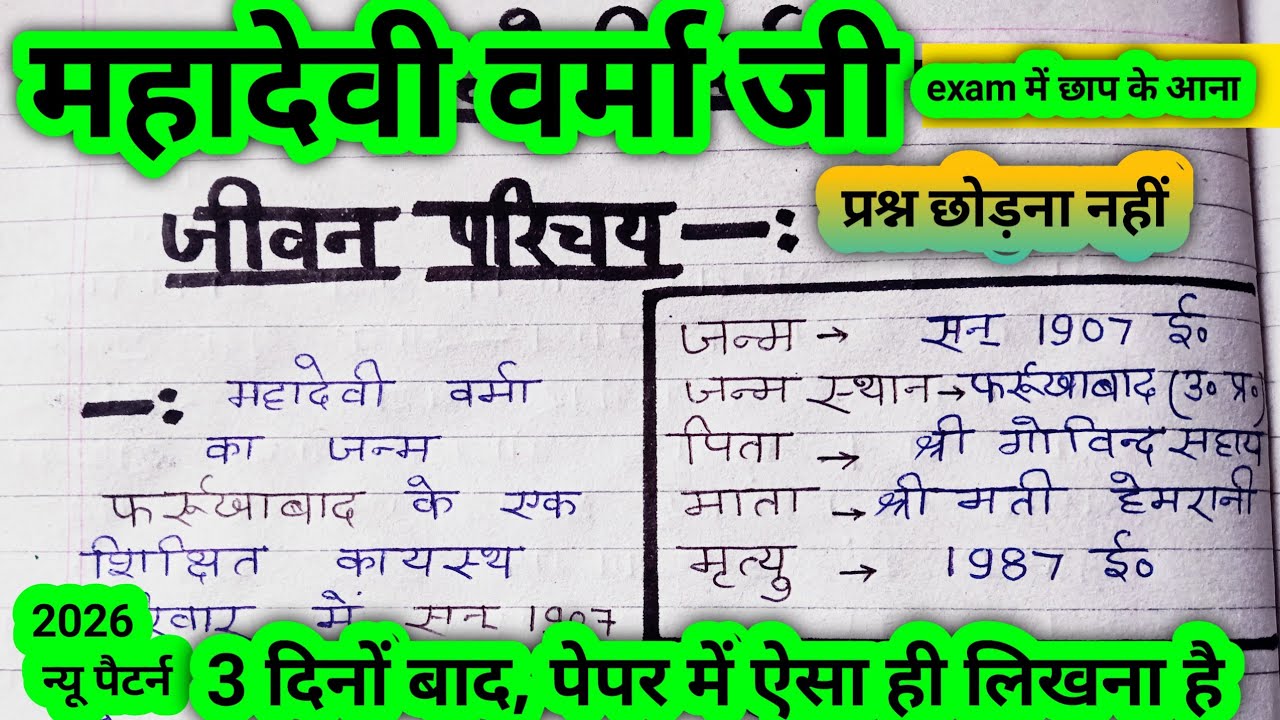 महादेवी वर्मा जी
exam में छाप के आना
प्रश्न छोड़ना नहीं
जीवन परिचय —:
जन्म → सन् 1907 ई०
जन्म स्थान → फर्रूखाबाद (उ० प्र०)
पिता → श्री गोविन्द सहाय
माता → श्री मती हेमरानी
मृत्यु → 1987 ई०
—: महादेवी वर्मा
का जन्म
फर्रूखाबाद के एक
शिक्षित कायस्थ
में सन् 1907
2026
न्यू पैटर्न
3 दिनों बाद, पेपर में ऐसा ही लिखना है